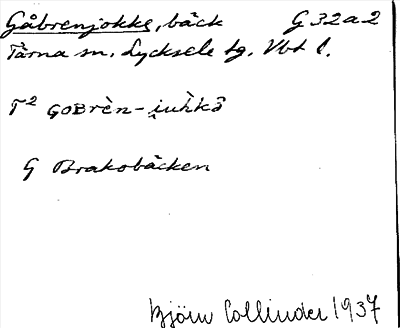 Gåbrenjokke, bäck G 32a2
Tärna sn. Lycksele tg. Vbt l.
T² GOBRèn-
G Brakobäcken
Björn Collinder 1937